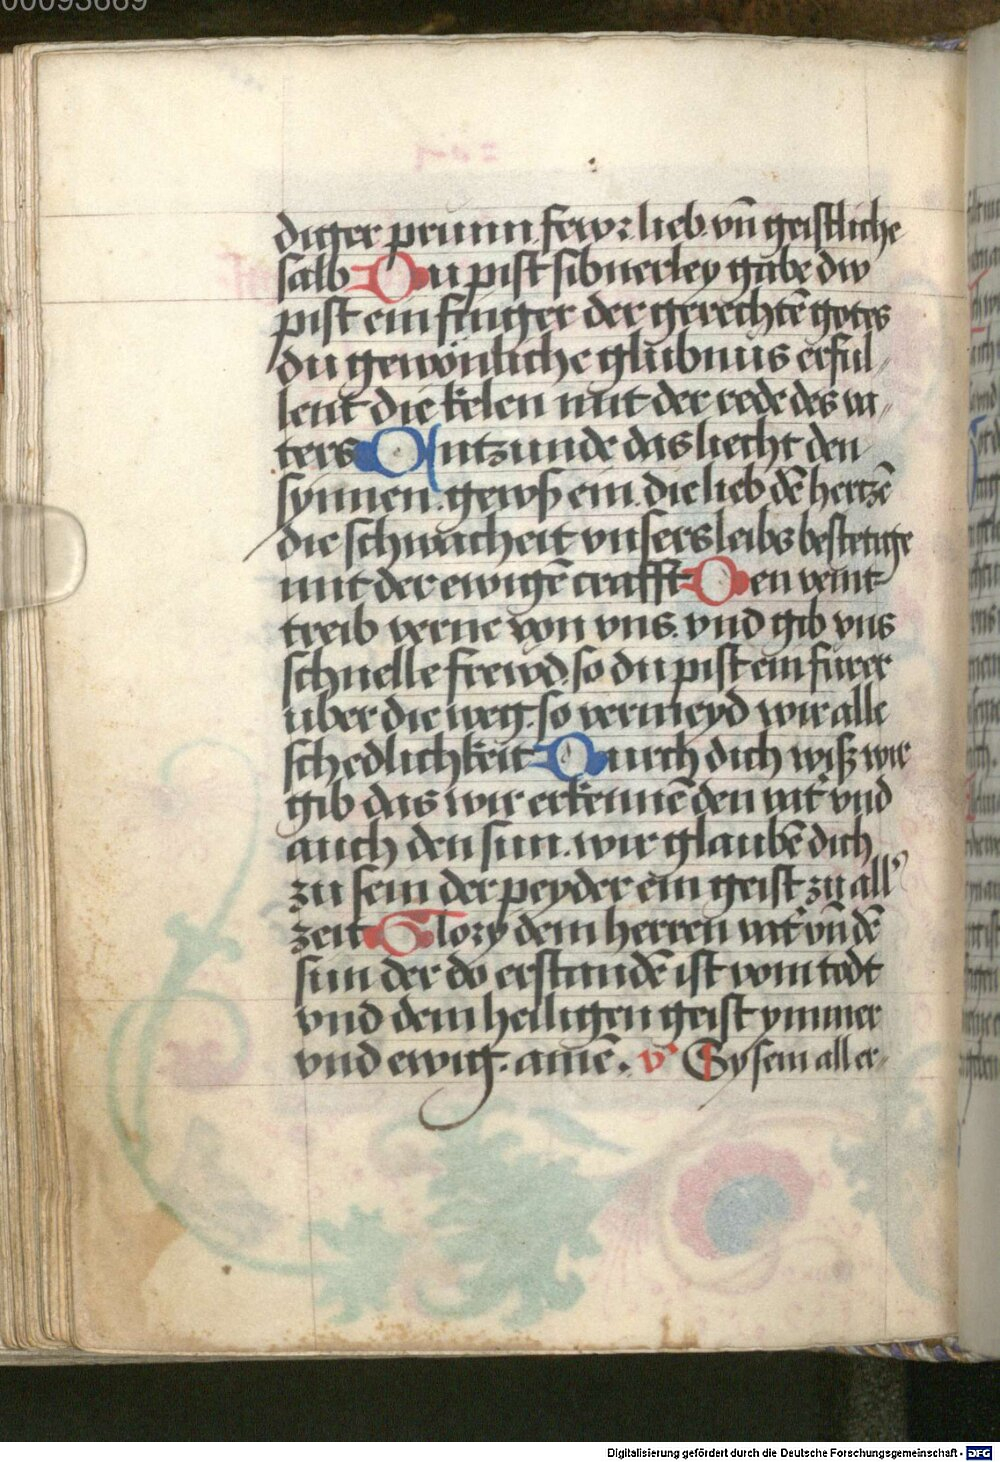 00093669
diger prunn. fewr lieb. vn̄ geistliche
salb Du pist sibnerley gabe dw
pist ein finger der gerechtē gotes
du gewönliche glubnus erful⸗
lent die kelen mit der rede des va⸗
ters Antzunde das liecht den
synnen. gewß ein. die lieb dē hertzē
die schwacheit vnsers leibs bestetige
mit der ewigē crafft Den veint
treib verne von vns. vnd gib vns
schnelle frewd. so du pist ein furer
uber die weg. so vermeyd wir alle
schedlichkeit Durch dich wiß wir
gib das wir erkennē den vat' vnd
auch den sun. wir glaubē dich
zu sein der peyder ein geist zu all'
zeit Glory dem herren vat' vn̄ dē
sun der do erstandē ist vom todt
vnd dem heiligen geist ymmer
vnd ewig. amē. v' Sy sein all er⸗
Digitalisierung gefördert durch die Deutsche Forschungsgemeinschaft - DFG